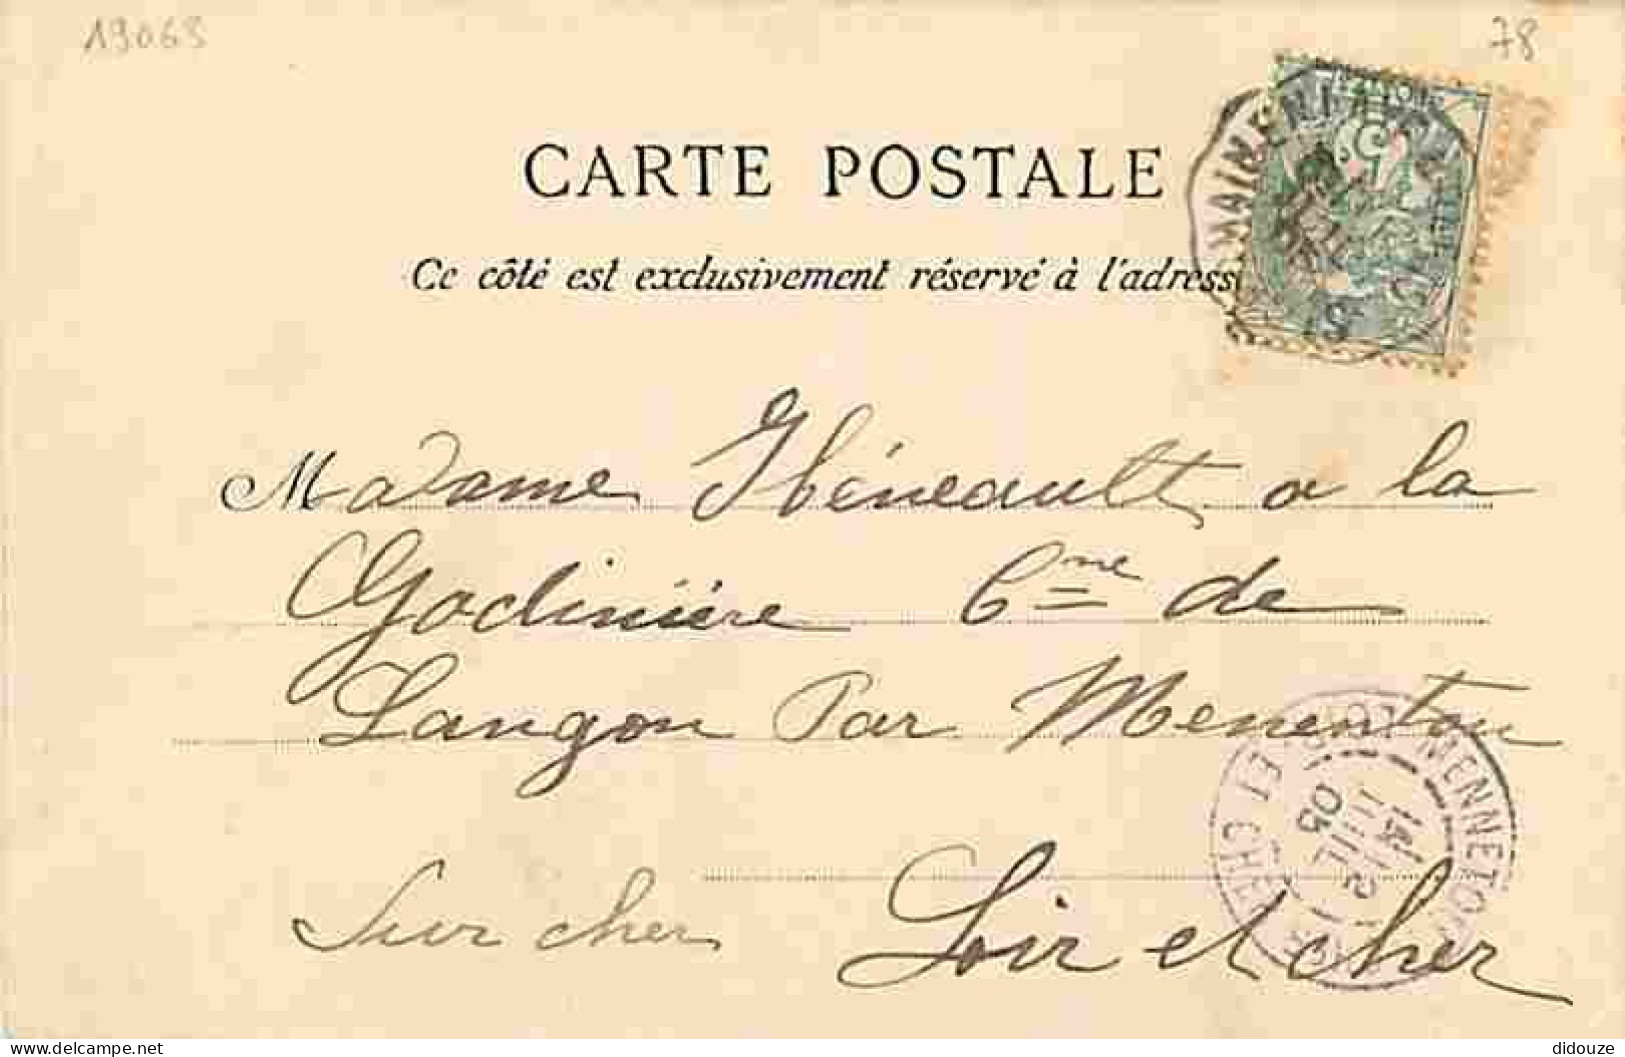 19063
78
CARTE POSTALE
Ce côté est exclusivement réservé à l'adresse
Madame Théneault a la
Godinière Cne de
Langon Par Menentou
Sur cher Loir et cher
MENNETOU
14
JUIL
05
LOIR ET CHER
delcampe.net
didouze